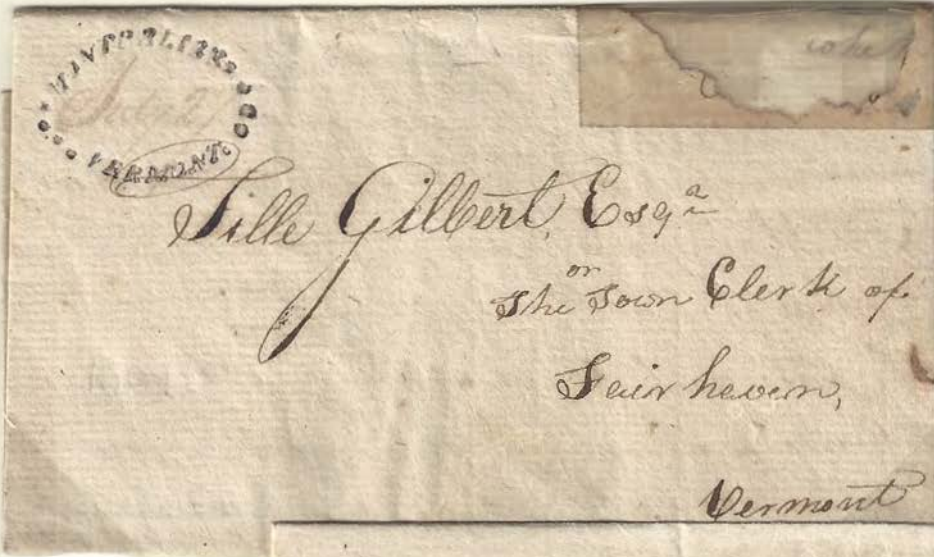 MONTPELIER
VERMONT.
Tille Gilbert, Esqr
or
The Town Clerk of
Fairhaven,
Vermont